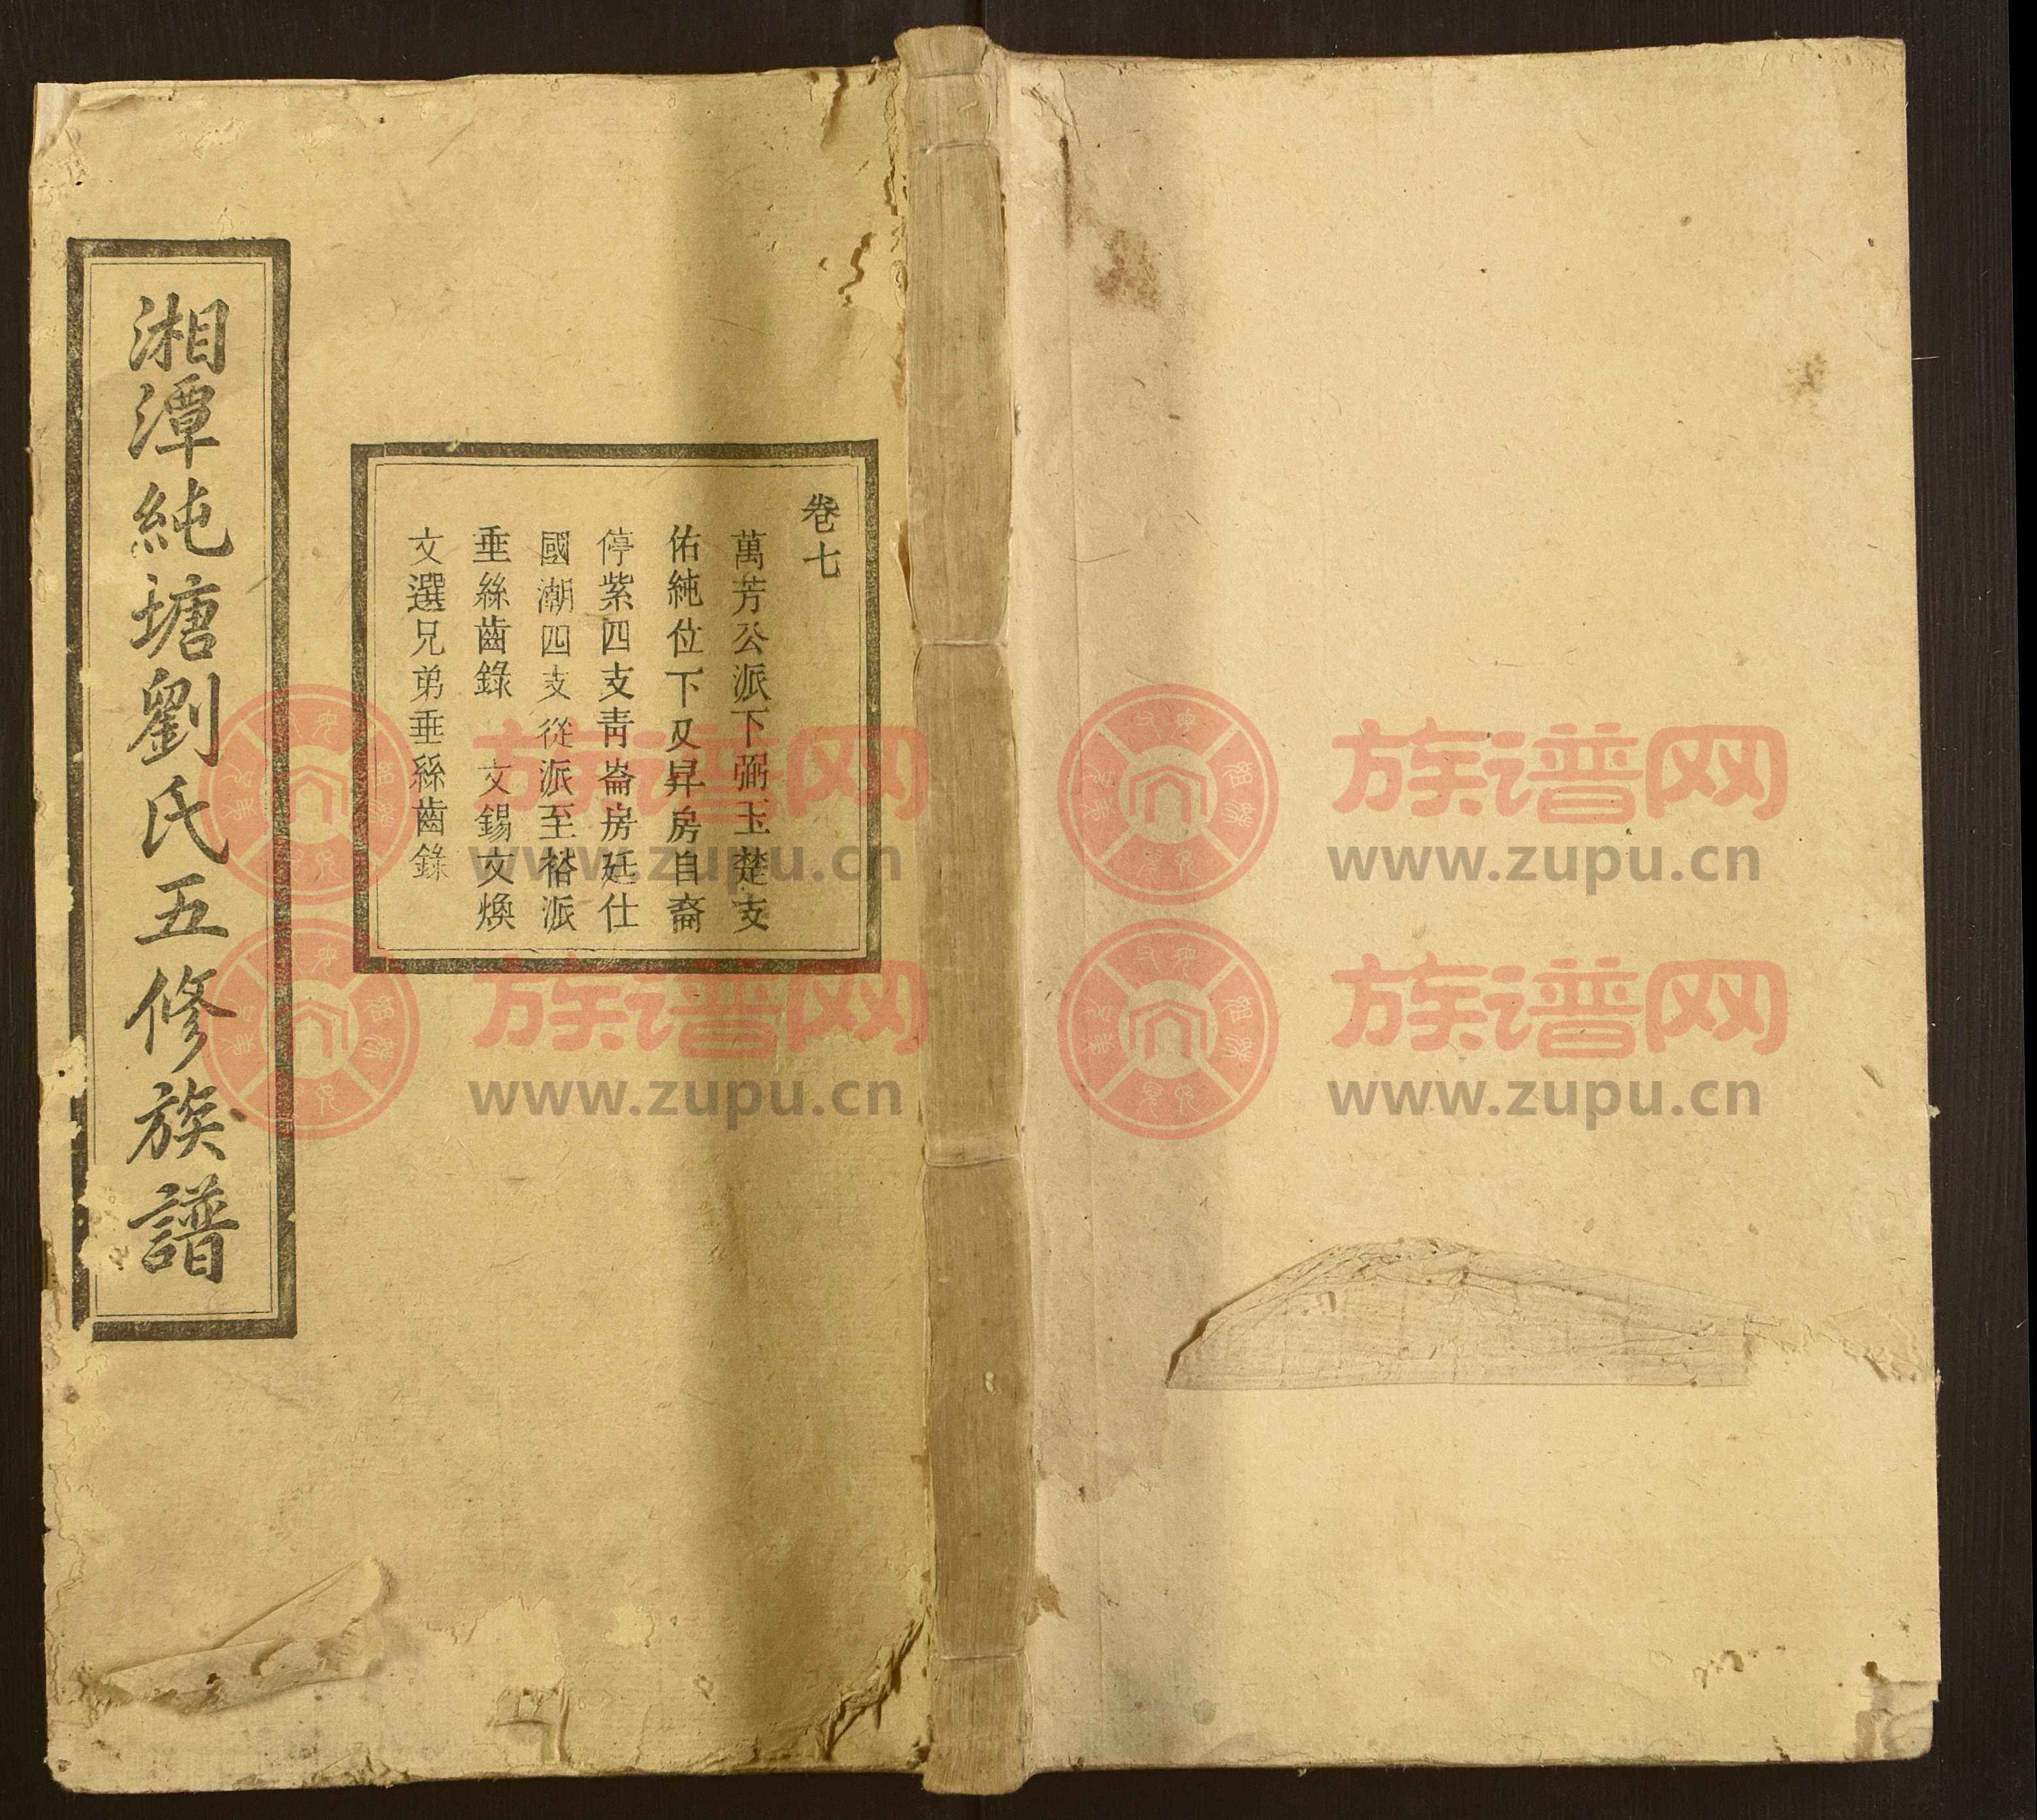 卷七
萬芳公派下弼玉楚支
佑純位下及昇房自裔
停紫四支靑崙房廷仕
國潮四支從派至裕派
垂絲齒錄 文錫文煥
文選兄弟垂絲齒錄
湘潭純塘劉氏五修族譜
族谱网
www.zupu.cn
族谱网
www.zupu.cn
族谱网
www.zupu.cn
族谱网
www.zupu.cn